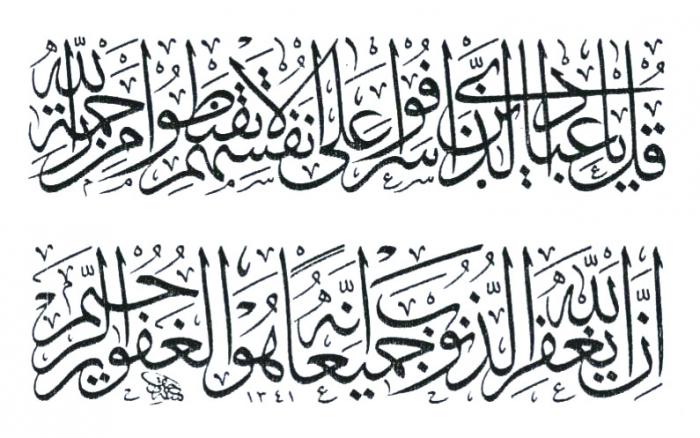 قل يا عبادي الذين اسرفوا على انفسهم لا تقنطوا من رحمة الله
ان الله يغفر الذنوب جميعا انه هو الغفور الرحيم
١٣٤١